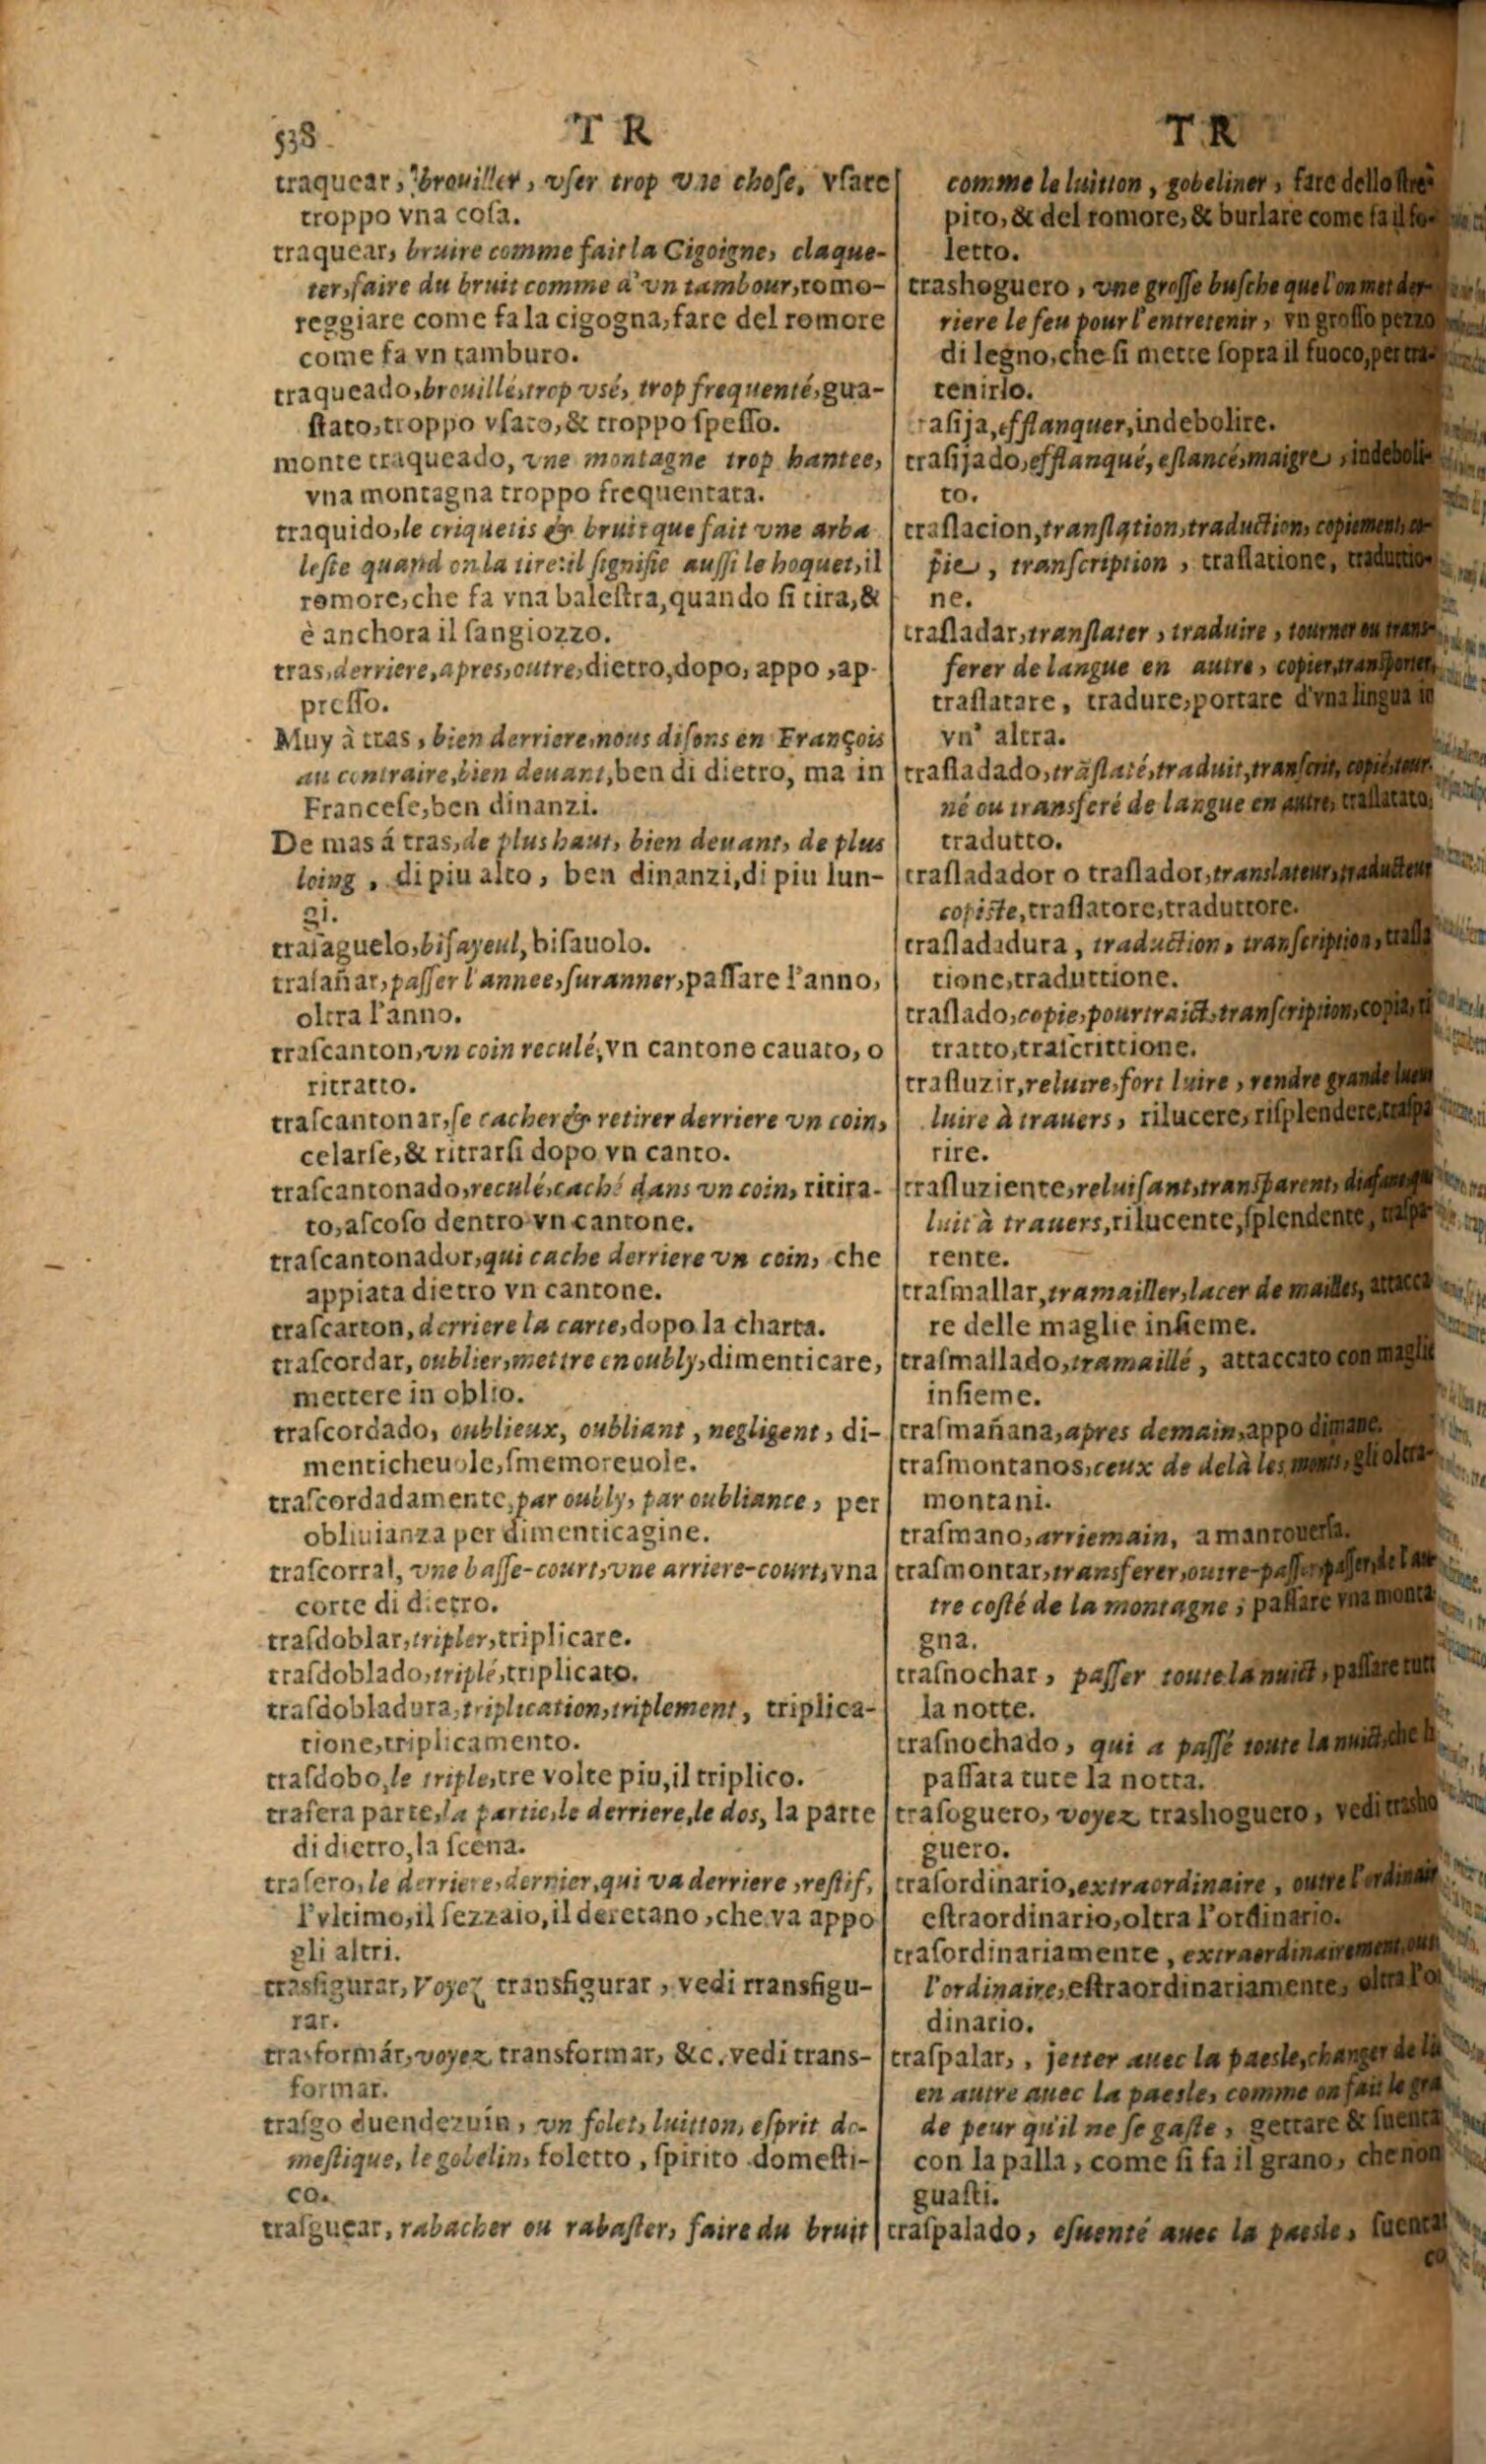 538 TR TR
traquear, brouiller, vſer trop vne choſe, vſare
troppo vna coſa.
traquear, bruire comme fait la Cigoigne, claque-
ter, faire du bruit comme d'vn tambour, romo-
reggiare come fa la cigogna, fare del romore
come fa vn tamburo.
traqueado, brouillé, trop vsé, trop frequenté, gua-
ſtato, troppo vſato, & troppo ſpeſſo.
monte traqueado, vne montagne trop hantee,
vna montagna troppo frequentata.
traquido, le criquetis & bruit que fait vne arba
leſte quand on la tire: il ſignifie auſſi le hoquet, il
romore, che fa vna baleſtra, quando ſi tira, &
è anchora il ſangiozzo.
tras, derriere, apres, outre, dietro, dopo, appo, ap-
preſſo.
Muy à tras, bien derriere, nous diſons en François
au contraire, bien deuant, ben di dietro, ma in
Franceſe, ben dinanzi.
De mas á tras, de plus haut, bien deuant, de plus
loing, di piu alto, ben dinanzi, di piu lun-
gi.
traſaguelo, biſayeul, biſauolo.
traſañar, paſſer l'annee, ſuranner, paſſare l'anno,
oltra l'anno.
traſcanton, vn coin reculé, vn cantone cauato, o
ritratto.
traſcantonar, ſe cacher & retirer derriere vn coin,
celarſe, & ritrarſi dopo vn canto.
traſcantonado, reculé, caché dans vn coin, ritira-
to, aſcoſo dentro vn cantone.
traſcantonador, qui cache derriere vn coin, che
appiata dietro vn cantone.
traſcarton, derriere la carte, dopo la charta.
traſcordar, oublier, mettre en oubly, dimenticare,
mettere in oblio.
traſcordado, oublieux, oubliant, negligent, di-
menticheuole, ſmemoreuole.
traſcordadamente, par oubly, par oubliance, per
obliuianza per dimenticagine.
traſcorral, vne baſſe-court, vne arriere-court, vna
corte di dietro.
traſdoblar, tripler, triplicare.
traſdoblado, triplé, triplicato.
traſdobladura, triplication, triplement, triplica-
tione, triplicamento.
traſdobo, le triple, tre volte piu, il triplico.
traſera parte, la partie, le derriere, le dos, la parte
di dietro, la ſcena.
traſero, le derriere, dernier, qui va derriere, reſtif,
l'vltimo, il ſezzaio, il deretano, che va appo
gli altri.
trasfigurar, Voyez transfigurar, vedi rransfigu-
rar.
trasformár, voyez transformar, &c. vedi trans-
formar.
traſgo duendezuin, vn folet, luitton, eſprit do-
meſtique, le gobelin, foletto, ſpirito domeſti-
co.
traſguear, rabacher ou rabaſter, faire du bruit
comme le luitton, gobeliner, fare dello ſtre
pito, & del romore, & burlare come fa il fo-
letto.
trashoguero, vne groſſe buſche que l'on met der-
riere le feu pour l'entretenir, vn groſſo pezzo
di legno, che ſi mette ſopra il fuoco, per tra-
tenirlo.
raſija, efflanquer, indebolire.
traſijado, efflanqué, eſlancé, maigre, indeboli-
to.
traſlacion, tranſlation, traduction, copiement, co-
pie, tranſcription, traſlatione, traduttio-
ne.
traſladar, tranſlater, traduire, tourner ou trans-
ferer de langue en autre, copier, tranſporter,
traſlatare, tradure, portare d'vna lingua in
vn' altra.
traſladado, trãſlaté, traduit, tranſcrit, copié, tour-
né ou transferé de langue en autre, traſlatato,
tradutto.
traſladador o traſlador, translateur, traducteur
copiſte, traſlatore, traduttore.
traſladadura, traduction, tranſcription, traſla
tione, traduttione.
traſlado, copie, pourtraict, tranſcription, copia, ri
tratto, traſcrittione.
traſluzir, reluire, fort luire, rendre grande lueur
luire à trauers, rilucere, riſplendere, traſpa
rire.
traſluziente, reluiſant, tranſparent, diafane, qui
luit à trauers, rilucente, ſplendente, traſpa-
rente.
traſmallar, tramailler, lacer de mailles, attacca
re delle maglie inſieme.
traſmallado, tramaillé, attaccato con maglie
inſieme.
traſmañana, apres demain, appo dimane.
traſmontanos, ceux de delà les monts, gli oltra-
montani.
traſmano, arriemain, a manrouerſa.
traſmontar, transferer, outre-paſſer, paſſer, de l'au
tre coſté de la montagne, paſſare vna monta
gna.
traſnochar, paſſer toute la nuict, paſſare tutt
la notte.
traſnochado, qui a paſſé toute la nuict, che h
paſſata tute la notta.
traſoguero, voyez trashoguero, vedi trasho
guero.
traſordinario, extraordinaire, outre l'ordinair
eſtraordinario, oltra l'ordinario.
traſordinariamente, extraordinairement, out
l'ordinaire, eſtraordinariamente, oltra l'or
dinario.
traſpalar,, jetter auec la paesle, changer de li
en autre auec la paesle, comme on fait le gra
de peur qu'il ne ſe gaſte, gettare & ſuenta
con la palla, come ſi fa il grano, che non
guaſti.
traſpalado, eſuenté auec la paesle, ſuenta
co